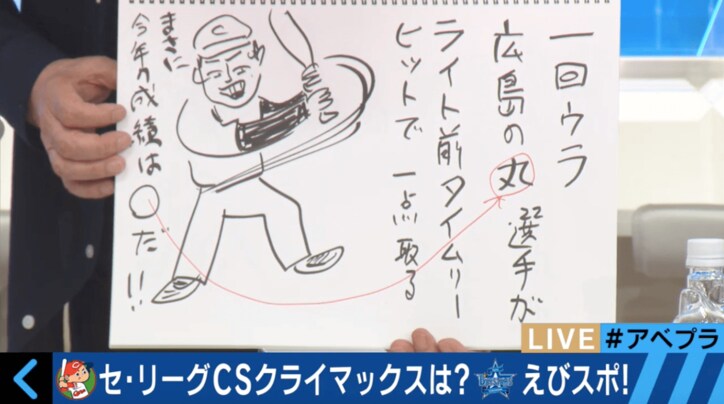 一回ウラ
広島の丸選手が
ライト前タイムリー
ヒットで一点取る
まさに
今年の成績は〇だ!!
LIVE #アベプラ
セ・リーグCSクライマックスは? えびスポ!